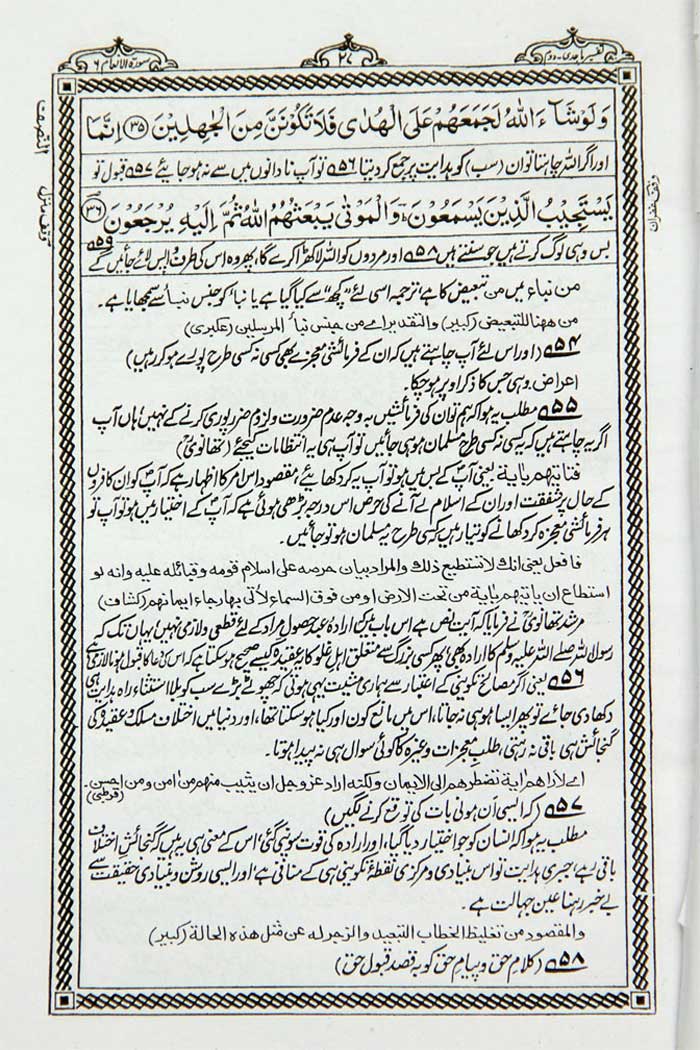 تفسیر ماجدی۔ دوم
۲۷
سورۃ الانعام ۶
وَلَوْ شَآءَ اللّٰهُ لَجَمَعَهُمْ عَلَى الْهُدٰى فَلَا تَكُوْنَنَّ مِنَ الْجٰهِلِيْنَ ۳۵ اِنَّمَا
اور اگر اللہ چاہتا تو ان (سب) کو ہدایت پر جمع کر دیتا ۵۶ تو آپ نادانوں میں سے نہ ہو جایئے ۵۷ قبول تو
يَسْتَجِيْبُ الَّذِيْنَ يَسْمَعُوْنَ ؕ وَالْمَوْتٰى يَبْعَثُهُمُ اللّٰهُ ثُمَّ اِلَيْهِ يُرْجَعُوْنَ ۳۶
بس وہی لوگ کرتے ہیں جو سنتے ہیں ۵۸ اور مردوں کو اللہ لاکھڑا کرے گا، پھر وہ اس کی طرف واپس لائے جائیں گے ۵۹
من نباء میں من تبعیض کا ہے، ترجمہ اسی لئے ”کچھ“ سے کیا گیا ہے یا نبا کو جنس نبأ سے سمجھایا ہے۔
من ههنا للتبعيض (كبير) والتقدير اے من جنس نبأ المرسلين (عکبری)
۵۴ (اور اس لئے آپ چاہتے ہیں کہ ان کے فرمائشی معجزے بھی کسی نہ کسی طرح پورے ہو کر رہیں)
اعراض۔ وہی جس کا ذکر اوپر ہو چکا۔
۵۵ مطلب یہ ہوا کہ ہم تو ان کی فرمائشیں بہ وجہ عدم ضرورت و لزوم ضرر پوری کرنے کے نہیں، ہاں آپ
اگر یہ چاہتے ہیں کہ یہ کسی نہ کسی طرح مسلمان ہو ہی جائیں تو آپ ہی یہ انتظامات کیجئے (تھانویؒ)
فتاتيهم باية۔ یعنی آپ کے بس میں ہو تو آپ یہ کر دکھایئے، مقصود اس امر کا اظہار ہے کہ آپ کو ان کافروں
کے حال پر شفقت اور ان کے اسلام لے آنے کی حرص اس درجہ بڑھی ہوئی ہے کہ آپ کے اختیار میں ہو تو آپ تو
ہر فرمائشی معجزہ کر دکھانے کو تیار ہیں کہ کسی طرح یہ مسلمان ہو تو جائیں۔
فافعل يعنى انك لا تستطيع ذلك والمراد بيان حرصه على اسلام قومه وقبائله عليه وانه لو
استطاع ان ياتيهم باية من تحت الارض او من فوق السماء لأتى بها رجاء ايمانهم (کشاف)
مرشد تھانویؒ نے فرمایا کہ آیت نص ہے اس باب میں کہ ارادۂ عبد حصول مراد کے لئے قطعی و لازمی نہیں، یہاں تک کہ
رسول اللہ صلے اللہ علیہ وسلم کا ارادہ بھی، پھر کسی بزرگ سے متعلق اہل غلو کا یہ عقیدہ کیسے صحیح ہو سکتا ہے کہ اس کی دعا کا قبول ہونا لازمی ہے
۵۶ یعنی اگر مصالح تکوینی کے اعتبار سے ہماری مشیت یہی ہوتی کہ چھوٹے بڑے سب کو بلا استثناء راہ ہدایت ہی
دکھا دی جائے تو پھر ایسا ہو ہی نہ جاتا، اس میں مانع کون اور کیا ہو سکتا تھا، اور دنیا میں اختلاف مسلک و عقیدہ کی
گنجائش ہی باقی نہ رہتی، طلب معجزات وغیرہ کا کوئی سوال ہی نہ پیدا ہوتا۔
اے لاراهم اية تضطرهم الى الايمان ولكنه اراد عزوجل ان يثيب منهم من امن ومن احسن۔ (قرطبی)
۵۷ (کہ ایسی اَن ہونی بات کی توقع کرنے لگیں)
مطلب یہ ہوا کہ انسان کو جو اختیار دیا گیا، اور ارادہ کی قوت سونپی گئی، اس کے معنی ہی یہ ہیں کہ گنجائش اختلاف
باقی رہے، جبری ہدایت تو اس بنیادی و مرکزی نقطۂ تکوینی ہی کے منافی ہے، اور ایسی روشن و بنیادی حقیقت سے
بے خبر رہنا عین جہالت ہے۔
والمقصود من تغليظ الخطاب التبعيد والزجر له عن مثل هذه الحالة (کبیر)
۵۸ (کلام حق و پیام حق کو بہ قصد قبول حق)
وقف غفران
وقف منزل